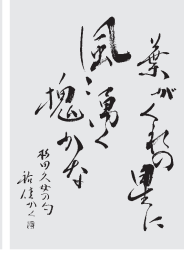 葉がくれの星に
風湧く
槐かな
杉田久女の句